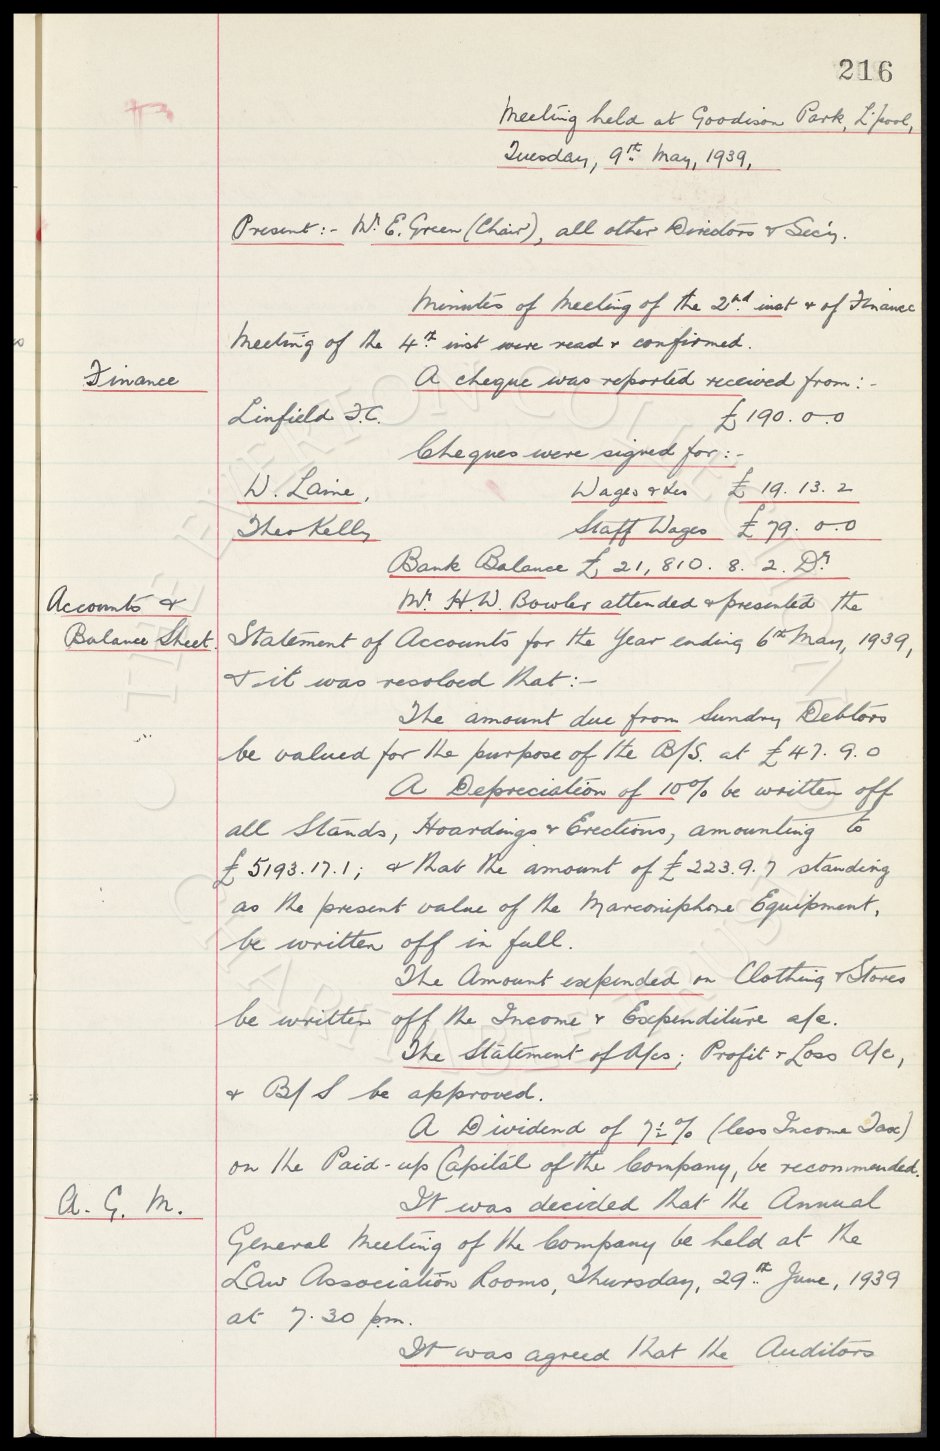 216
Meeting held at Goodison Park, L'pool,
Tuesday, 9th May, 1939,
Present:- Mr E. Green (Chair), all other Directors & Sec'y.
Minutes of Meeting of the 2nd inst & of Finance
Meeting of the 4th inst were read & confirmed.
Finance
A cheque was reported received from:-
Linfield F.C. £190.0.0
Cheques were signed for:-
W. Laine, Wages & Exs £19.13.2
Theo Kelly Staff Wages £79.0.0
Bank Balance £21,810.8.2. Dr
Accounts &
Balance Sheet.
Mr H.W. Bowler attended & presented the
Statement of Accounts for the Year ending 6th May, 1939,
& it was resolved that:-
The amount due from Sundry Debtors
be valued for the purpose of the B/S. at £47.9.0
A Depreciation of 10% be written off
all Stands, Hoardings & Erections, amounting to
£5193.17.1; & that the amount of £223.9.7 standing
as the present value of the Marconiphone Equipment,
be written off in full.
The Amount expended on Clothing & Stores
be written off the Income & Expenditure a/c.
The Statement of A/cs; Profit & Loss A/c,
& B/S be approved.
A Dividend of 7½% (less Income Tax)
on the Paid-up Capital of the Company, be recommended.
A.G.M.
It was decided that the Annual
General Meeting of the Company be held at the
Law Association Rooms, Thursday, 29th June, 1939
at 7.30 pm.
It was agreed that the Auditors
© THE EVERTON COLLECTION
CHARITABLE TRUST